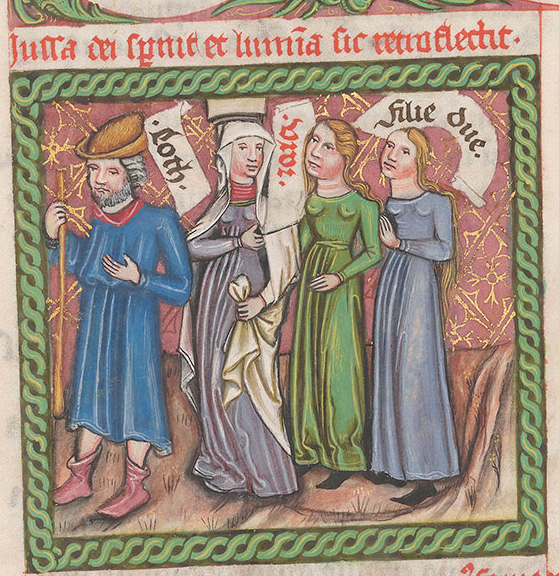 Jussa dei sp̄nit et lumīa sic retroflectit.
.Loth.
uxor.
filie due.